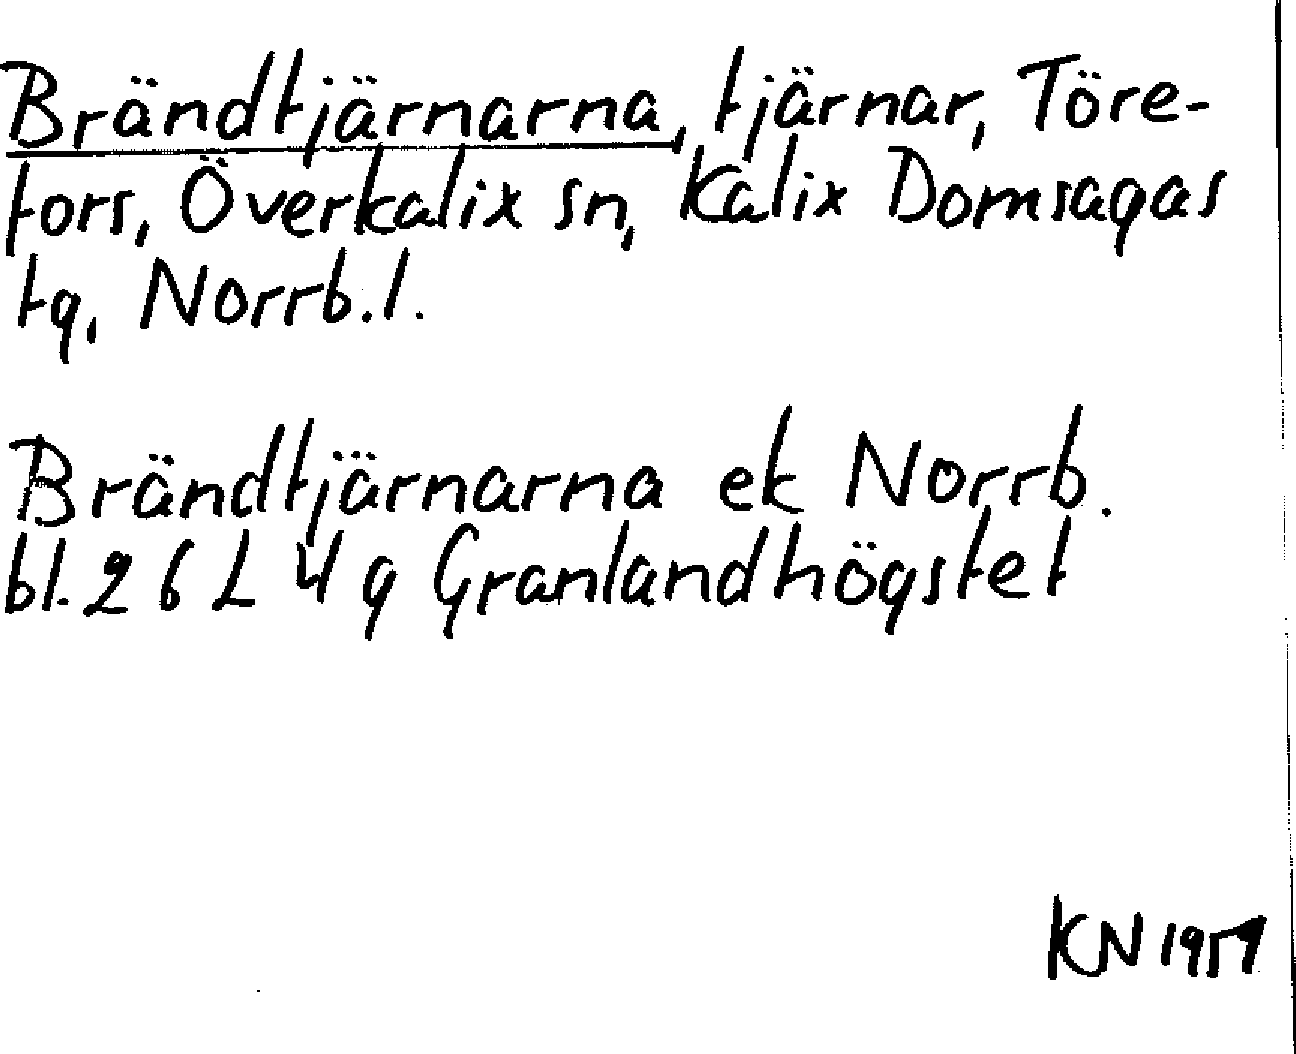 Brändtjärnarna, tjärnar, Töre-
fors, Överkalix sn, Kalix Domsagas
tg, Norrb.l.
Brändtjärnarna ek Norrb.
bl. 26 L 4 g Granlandhögstet
KN